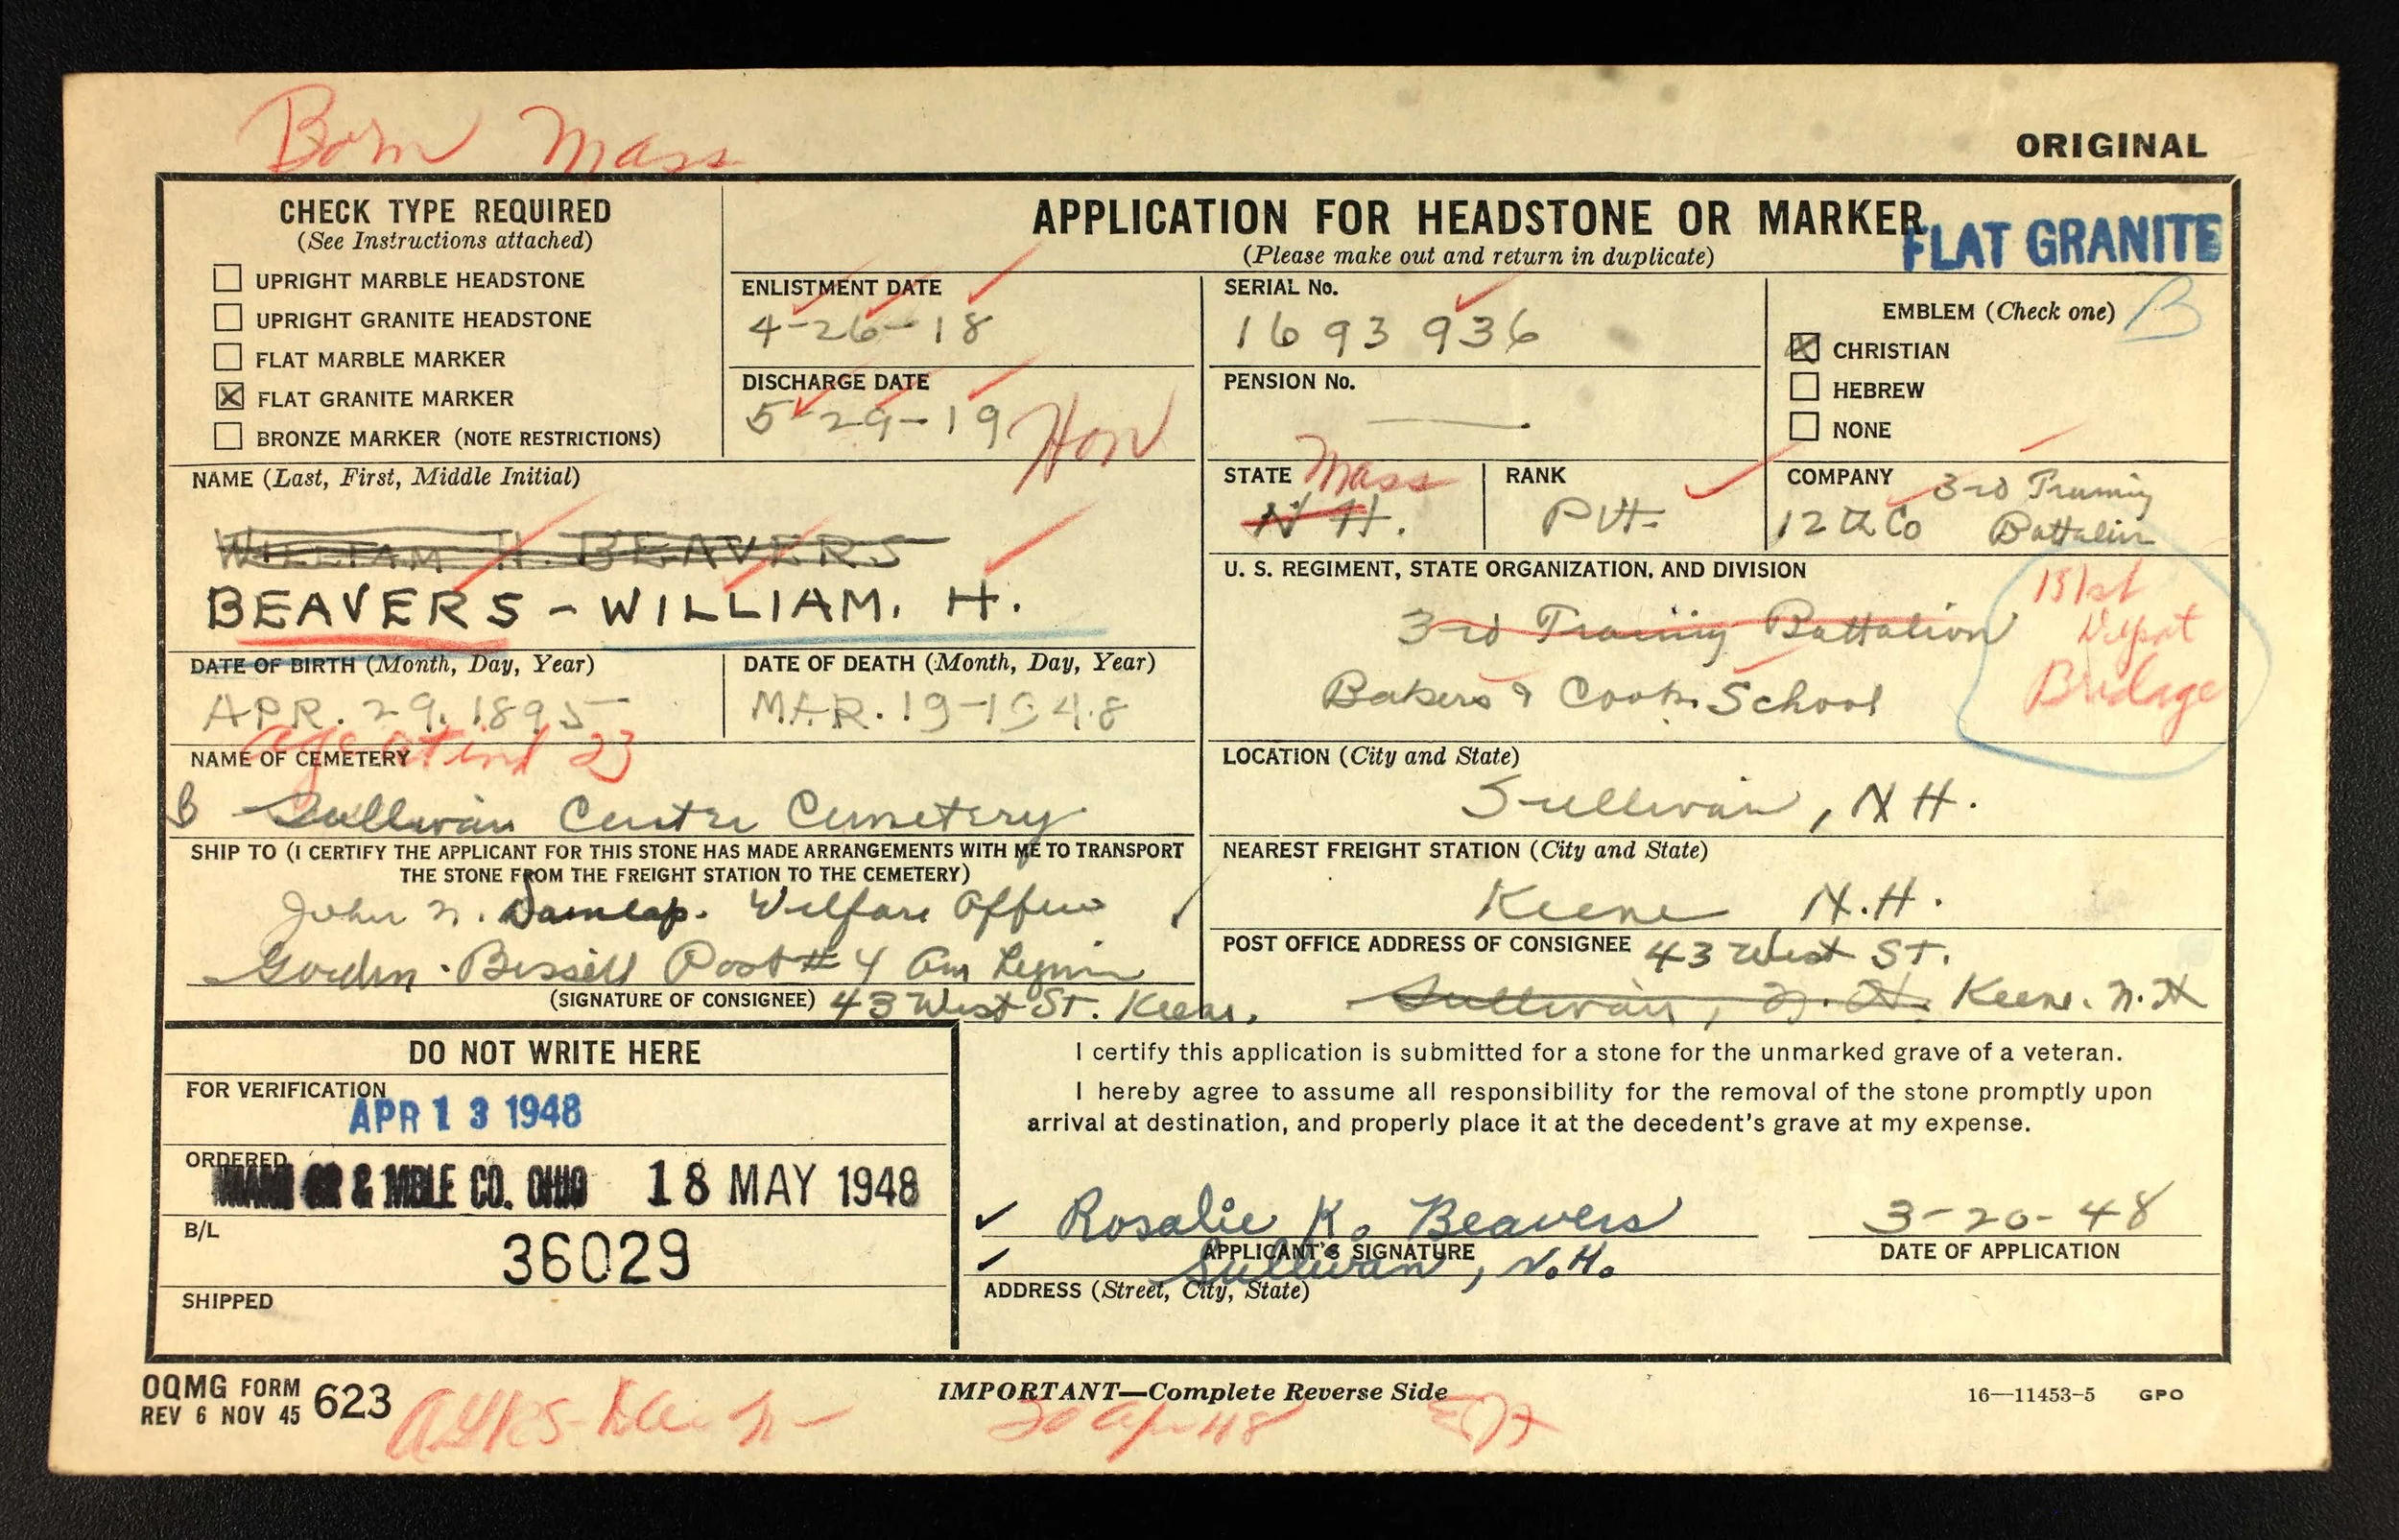 Born Mass
ORIGINAL
CHECK TYPE REQUIRED
(See Instructions attached)
UPRIGHT MARBLE HEADSTONE
UPRIGHT GRANITE HEADSTONE
FLAT MARBLE MARKER
☒ FLAT GRANITE MARKER
BRONZE MARKER (NOTE RESTRICTIONS)
APPLICATION FOR HEADSTONE OR MARKER
FLAT GRANITE
(Please make out and return in duplicate)
ENLISTMENT DATE
4-26-18
DISCHARGE DATE
5-29-19 Hon
SERIAL No.
1693936
PENSION No.
EMBLEM (Check one) B
☒ CHRISTIAN
HEBREW
NONE
NAME (Last, First, Middle Initial)
WILLIAM H. BEAVERS
BEAVERS - WILLIAM. H.
STATE Mass
N H.
RANK
Pvt
COMPANY 3rd Training
12th Co Battalion
U. S. REGIMENT, STATE ORGANIZATION, AND DIVISION
3rd Training Battalion
Bakers & Cooks School
151st
Depot
Bridage
DATE OF BIRTH (Month, Day, Year)
APR. 29. 1895
DATE OF DEATH (Month, Day, Year)
MAR. 19-1948
age at ind 23
NAME OF CEMETERY
B Sullivan Center Cemetery
LOCATION (City and State)
Sullivan, N H.
SHIP TO (I CERTIFY THE APPLICANT FOR THIS STONE HAS MADE ARRANGEMENTS WITH ME TO TRANSPORT
THE STONE FROM THE FREIGHT STATION TO THE CEMETERY)
John N. Dunlap. Welfare Officer
Gordon-Bissell Post #4 Am Legion
(SIGNATURE OF CONSIGNEE) 43 West St. Keene.
NEAREST FREIGHT STATION (City and State)
Keene N.H.
POST OFFICE ADDRESS OF CONSIGNEE 43 West St.
Sullivan, N.H. Keene. N.H
DO NOT WRITE HERE
FOR VERIFICATION
APR 13 1948
ORDERED
& MBLE CO. OHIO 18 MAY 1948
B/L
36029
SHIPPED
I certify this application is submitted for a stone for the unmarked grave of a veteran.
I hereby agree to assume all responsibility for the removal of the stone promptly upon
arrival at destination, and properly place it at the decedent's grave at my expense.
Rosalie K. Beavers
APPLICANT'S SIGNATURE
3-20-48
DATE OF APPLICATION
Sullivan, N.H.
ADDRESS (Street, City, State)
OQMG FORM 623
REV 6 NOV 45
IMPORTANT—Complete Reverse Side
16—11453-5 GPO
20 Apr 48